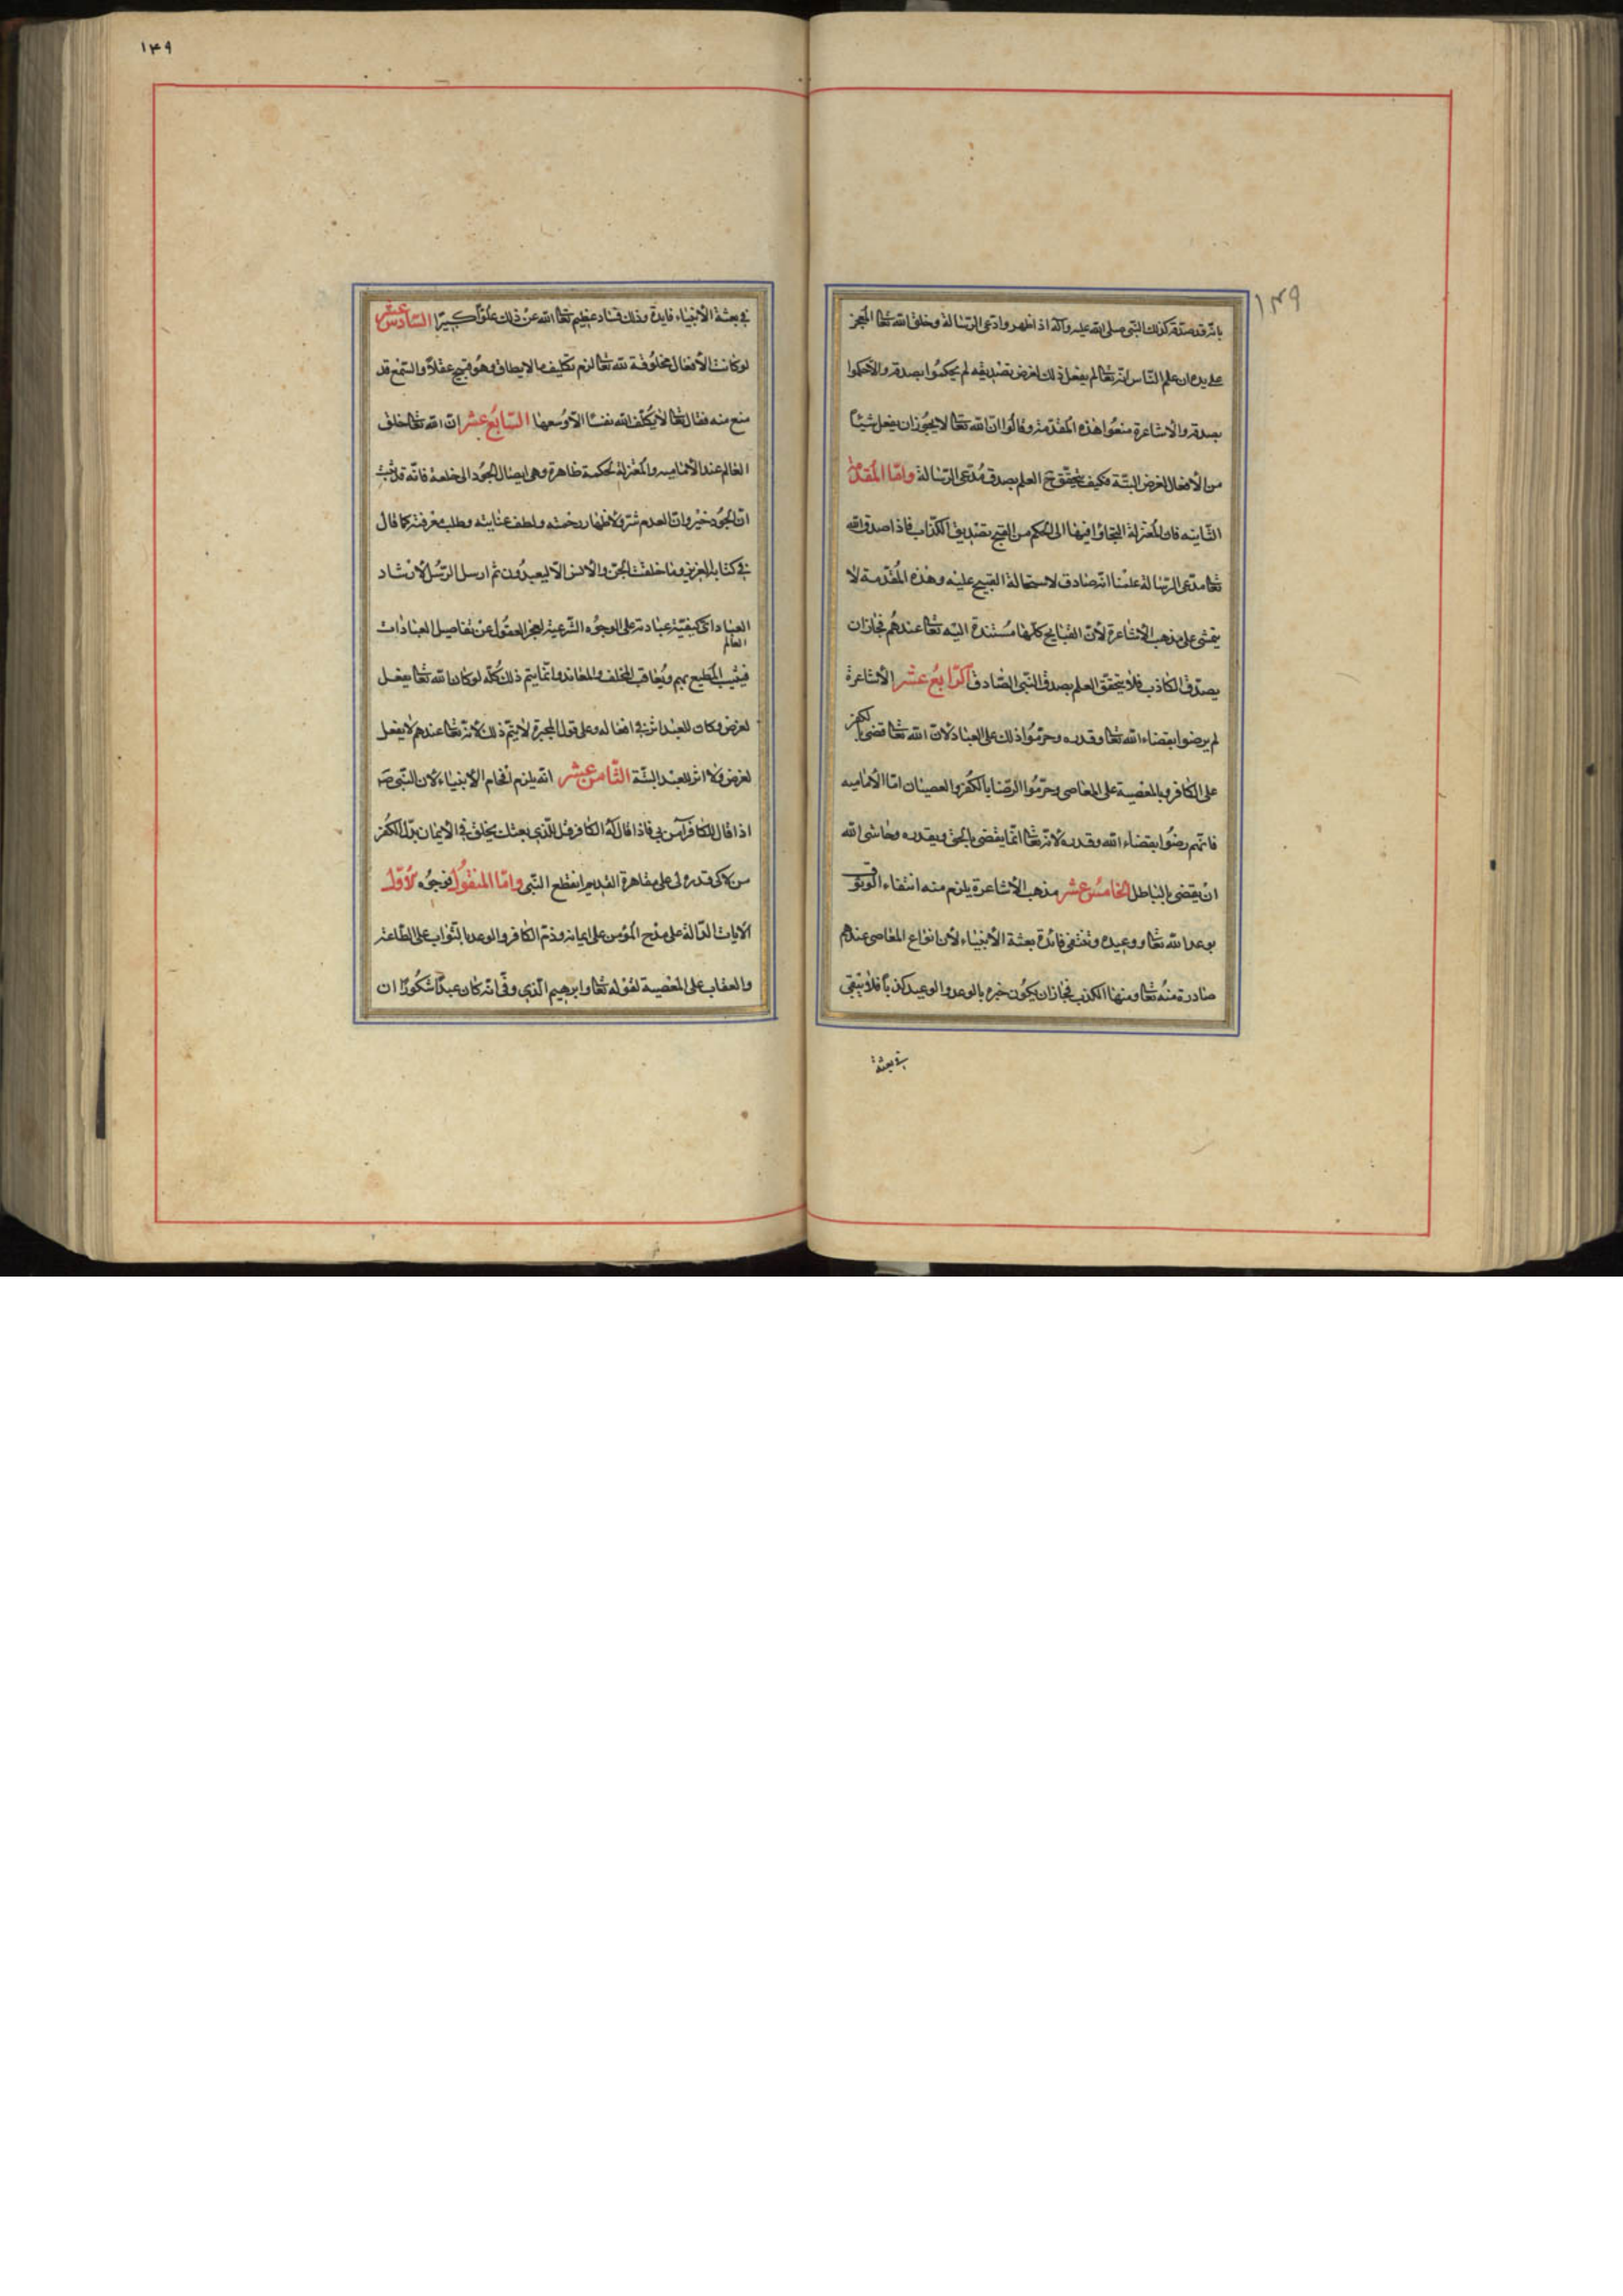 ١٣٩
بانه قد صدقه كذلك النبى صلى الله عليه وآله اذا ظهر وادعى الرسالة وخلق الله تعا المعجز
على يده فان علم الناس انه تعا لم يفعل ذلك لغرض تصديقه لم يحكموا بصدقه والا حكموا
بصدقه والاشاعرة منعوا هذه المقدمة وقالوا ان الله تعا لا يجوز ان يفعل شيئا
من الأفعال لغرض البتة فكيف يتحقق ح العلم بصدق مدعى الرسالة واما المقدمة
الثانيه فان المعتزلة التجاؤا فيها الى الحكم من القبح تصديق الكذاب فاذا صدق الله
تعا مدعى الرسالة علمنا انه صادق لاستحالة القبيح عليه وهذه المقدمة لا
يتمشى على مذهب الأشاعرة لأن القبايح كلها مستندة اليه تعا عندهم فجاز ان
يصدق الكاذب فلا يتحقق العلم بصدق النبى الصادق الرابع عشر الأشاعرة
لم يرضوا بقضاء الله تعا وقدره وحرموا ذلك على العباد لأن الله تعا قضى بالكفر
على الكافر وبالمعصية على المعاصى وحرموا الرضا بالكفر والعصيان اما الأماميه
فانهم رضوا بقضاء الله وقدره لانه تعا انما يقضى بالحق وبقدره وحاشى الله
ان يقضى بالباطل الخامس عشر مذهب الأشاعرة يلزم منه انتفاء الوثوق
بوعد الله تعا ووعيده وتنتفى فائدة بعثة الأنبياء لأن انواع المعاصى عندهم
صادرة منه تعا ومنها الكذب فجاز ان يكون خبره بالوعد والوعيد كذبا فلا يبقى
فى بعثة
١٣٩
فى بعثة الأنبياء فايدة وذلك فساد عظيم تعا الله عن ذلك علوا كبيرا السادس عشر
لو كانت الأفعال مخلوقة لله تعا لزم تكليف ما لا يطاق وهو قبيح عقلا والسمع قد
منع منه فقال تعا لا يكلف الله نفسا الا وسعها السابع عشر ان الله تعا خلق
العالم عند الأماميه والمعتزلة لحكمة ظاهرة وهى ايصال الجود الى خلقه فانه قد ثبت
ان الجود خير وان العدم شر ولاظهار رحمته ولطف عنايته وطلب معرفته كما قال
فى كتابه العزيز وما خلقت الجن والانس الا ليعبدون ثم ارسل الرسل لارشاد
العباد الى كيفية عبادته على الوجوه الشرعية لعجز العقول عن تفاصيل العبادات
العالم
فيثيب المطيع بهم ويعاقب المخلف والمعاند وانما يتم ذلك كله لو كان الله تعا يفعل
لغرض وكان للعبد اثر فى افعاله وعلى قول المجبرة لا يتم ذلك لأنه تعا عندهم لا يفعل
لغرض ولا اثر للعبد البتة الثامن عشر انه يلزم افحام الأنبياء لان النبى ص
اذا قال للكافر آمن بى فاذا قال له الكافر قل للذى بعثك يخلق فى الايمان بدل الكفر
من لا قدرة لى على مقاهرة القديم انقطع النبى واما المنقول فوجوه الأول
الآيات الدالة على مدح المؤمن على ايمانه وذم الكافر والوعد بالثواب على الطاعة
والعقاب على المعصية لقوله تعا وابرهيم الذى وفى انه كان عبدا شكورا ان